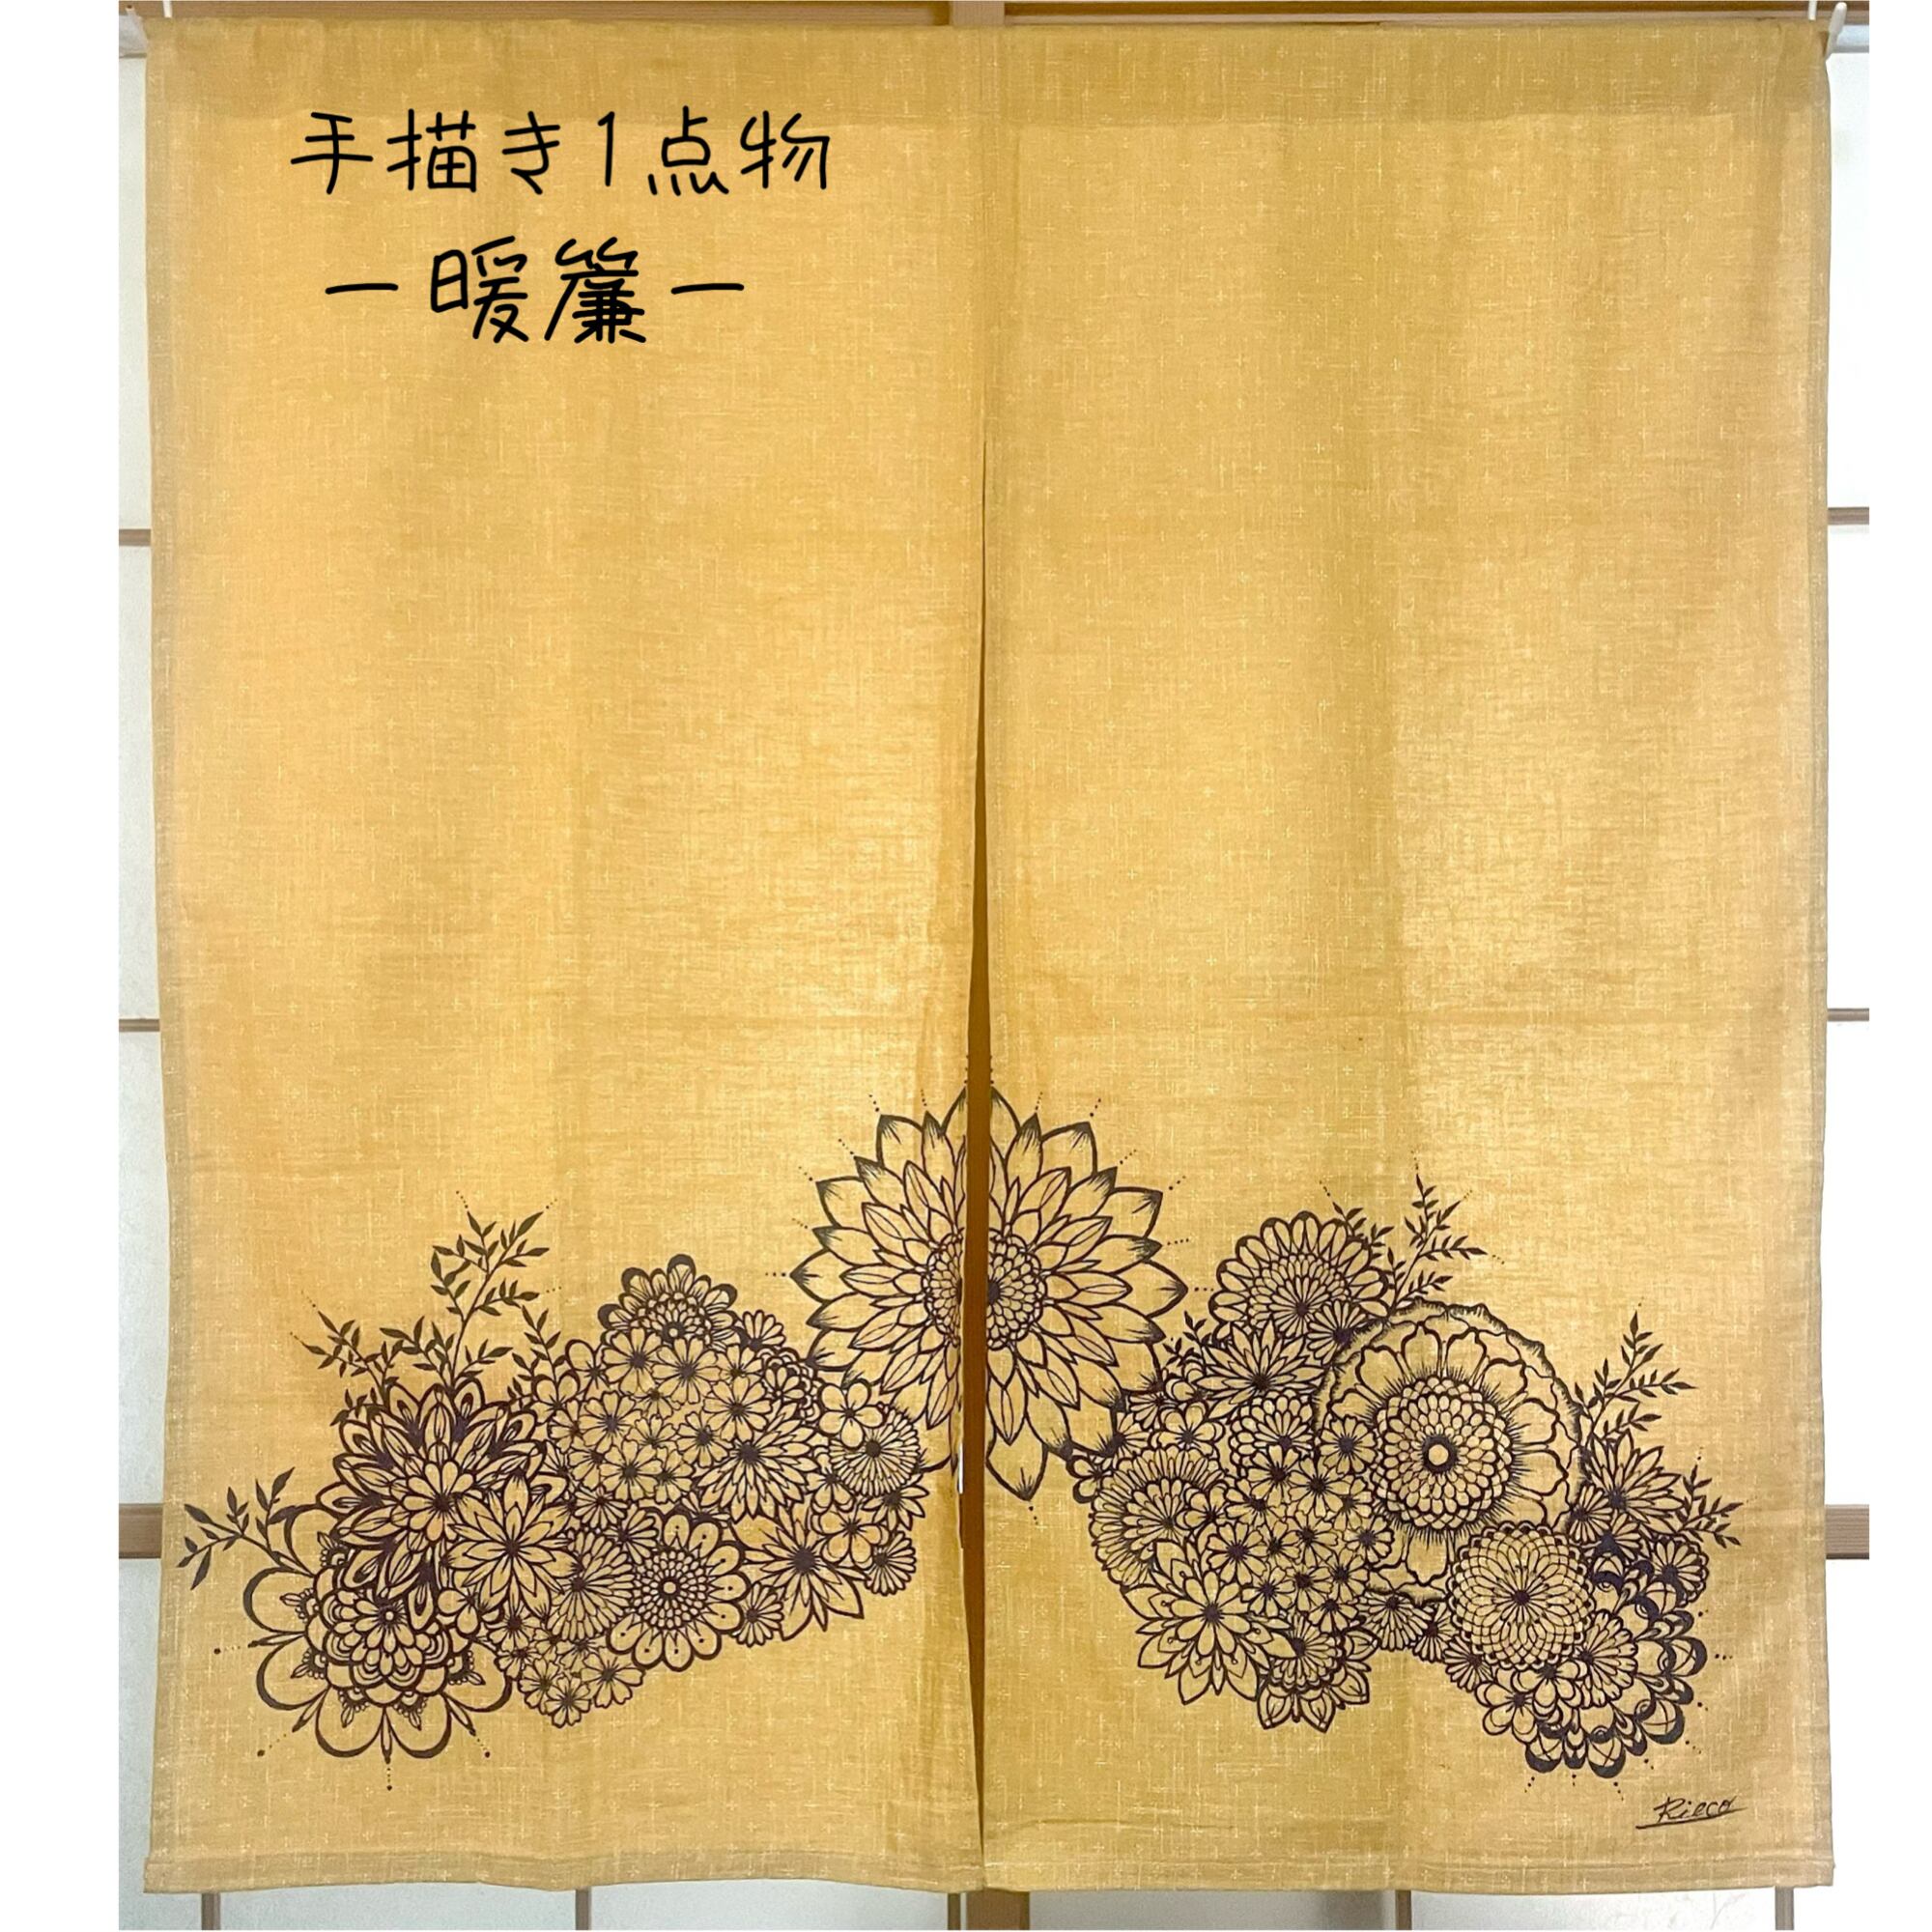 手描き1点物
－暖簾－
Rieco